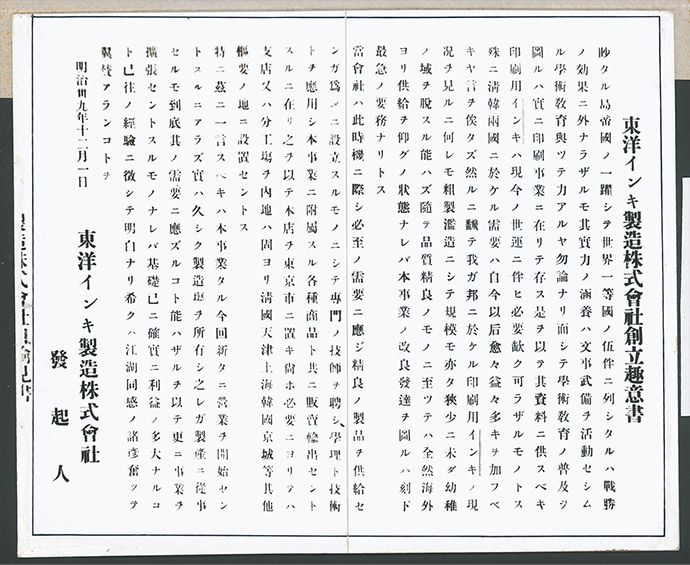 東洋インキ製造株式會社創立趣意書
眇タル島帝國ノ一躍シテ世界一等國ノ伍伴ニ列シタルハ戰勝
ノ効果ニ外ナラザルモ其實力ノ涵養ハ文事武備ヲ活動セシム
ル學術敎育與ツテ力アルヤ勿論ナリ而シテ學術敎育ノ普及ヲ
圖ルハ實ニ印刷事業ニ在リテ存ス是ヲ以テ其資料ニ供スベキ
印刷用インキハ現今ノ世運ニ伴ヒ必要缺ク可ラザルモノトス
殊ニ淸韓兩國ニ於ケル需要ハ自今以后愈々益々多キヲ加フベ
キヤ言ヲ俟タズ然ルニ飜テ我ガ邦ニ於ケル印刷用インキノ現
況ヲ見ルニ何レモ粗製濫造ニシテ規模モ亦タ狹少ニ未ダ幼稚
ノ域ヲ脫スル能ハズ隨テ品質精良ノモノニ至ツテハ全然海外
ヨリ供給ヲ仰グノ狀態ナレバ本事業ノ改良發達ヲ圖ルハ刻下
最急ノ要務ナリトス
當會社ハ此時機ニ際シ必至ノ需要ニ應ジ精良ノ製品ヲ供給セ
ンガ爲メニ設立スルモノニシテ專門ノ技師ヲ聘シ、學理ト技術
トヲ應用シ本事業ニ附屬スル各種商品ト共ニ販賣輸出セント
スルニ在リ之ヲ以テ本店ヲ東京市ニ置キ尙ホ必要ニヨリテハ
支店又ハ分工塲ヲ內地ハ固ヨリ淸國天津上海韓國京城等其他
樞要ノ地ニ設置セントス
特ニ茲ニ一言スベキハ本事業タル今回新タニ營業ヲ開始セン
トスルニアラズ實ハ久シク製造塲ヲ所有シ之レガ製產ニ從事
セルモ到底其ノ需要ニ應ズルコト能ハザルヲ以テ更ニ事業ヲ
擴張セントスルモノナレバ基礎已ニ確實ニ利益ノ多大ナルコ
ト已往ノ經驗ニ徵シテ明白ナリ希クハ江湖同感ノ諸彥奮ツテ
翼贊アランコトヲ
明治卅九年十二月一日
東洋インキ製造株式會社
發起人
製造株式會社目論見書